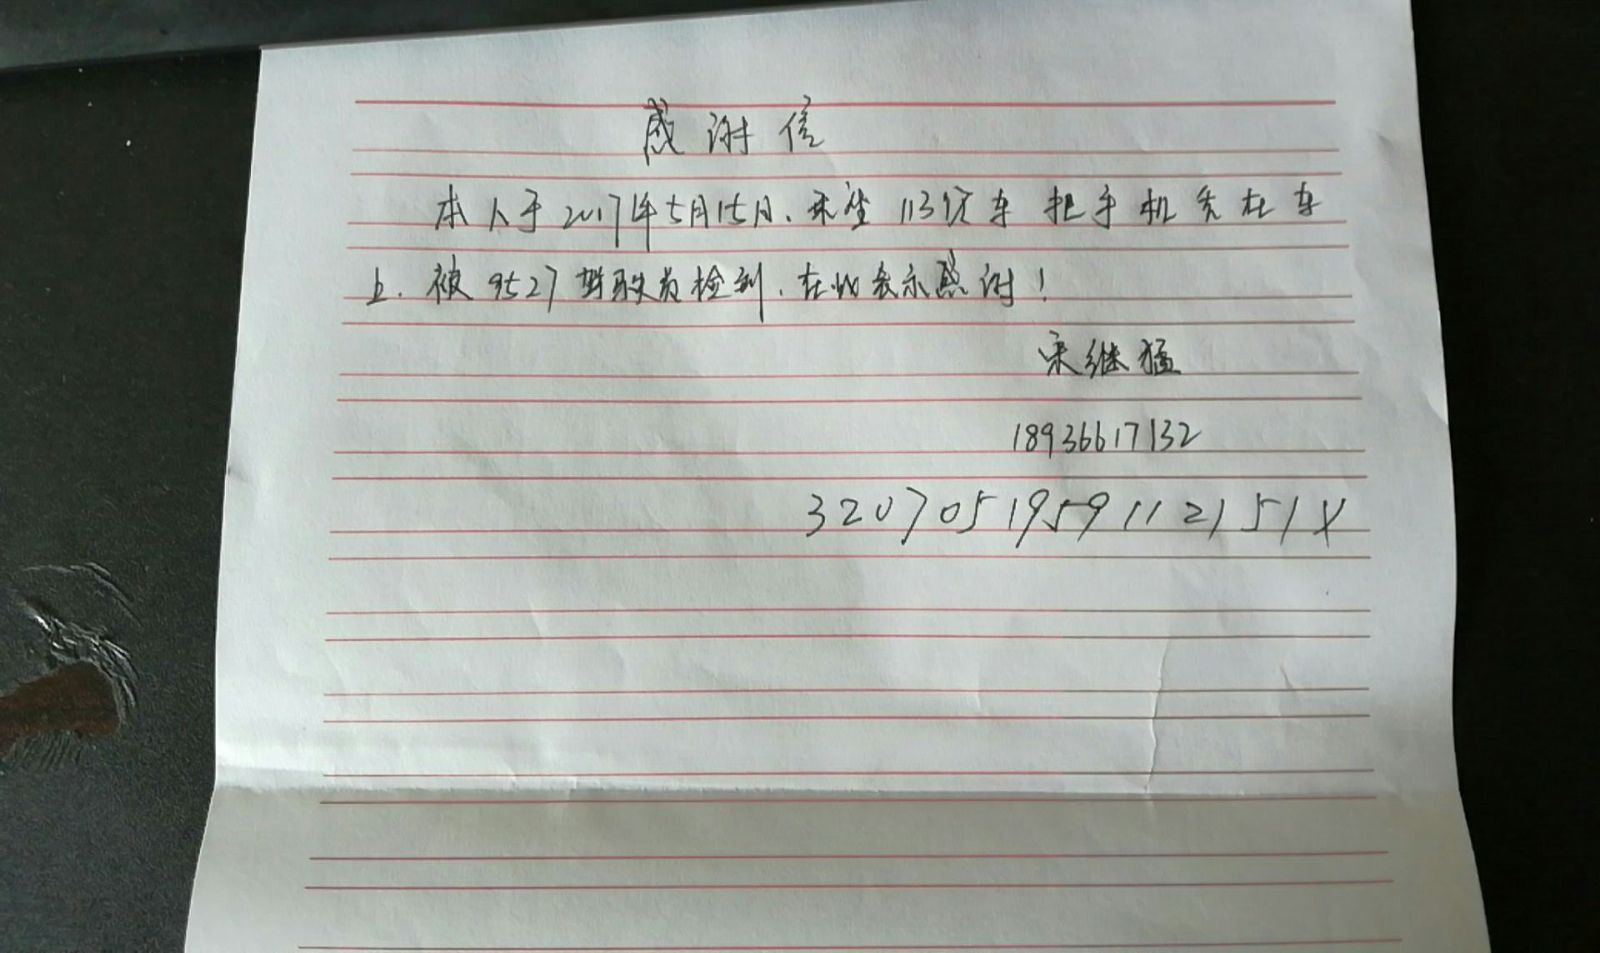 感谢信
本人于2017年5月15日、乘坐113路车把手机丢在车
上.被9527驾驶员检到.在此表示感谢!
宋继猛
18936617132
32070519591121511X